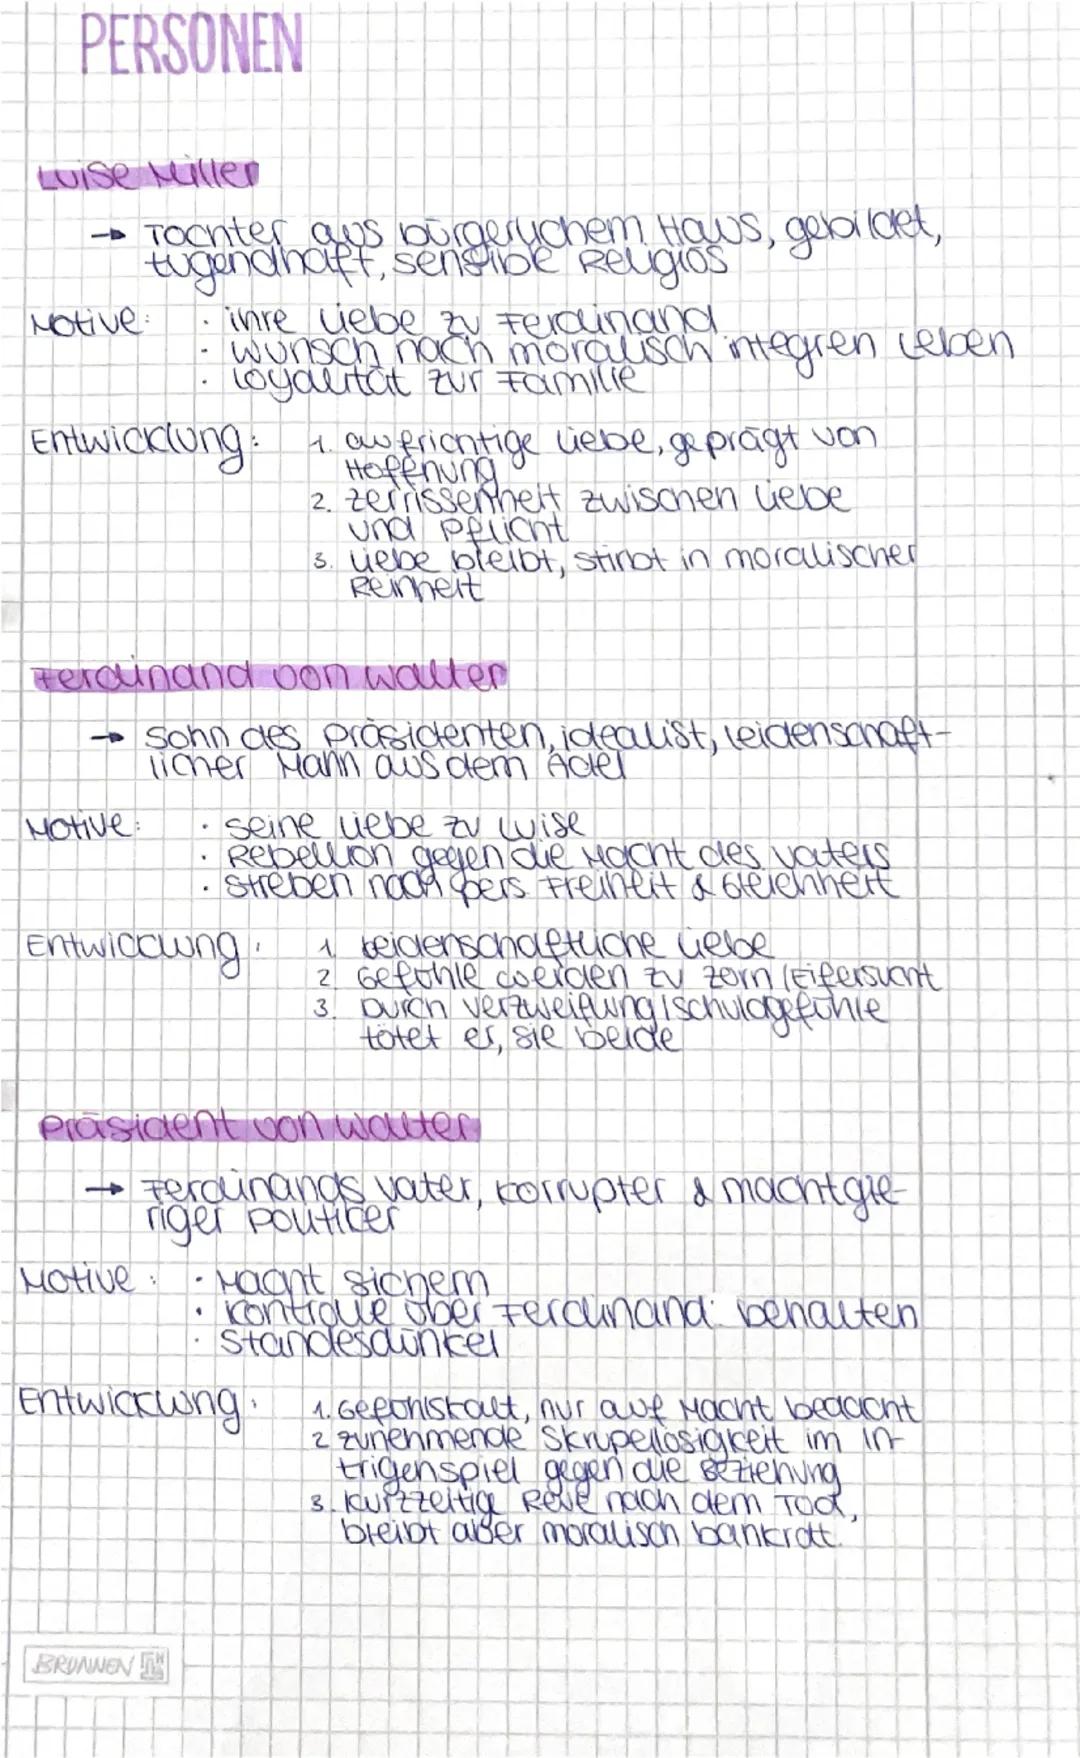 PERSONEN
Luise Miller
→ Tochter aus bürgerlichem Haus, gebildet,
tugendhaft, sensible Religiös
Motive: · ihre Liebe zu Ferdinand
· Wunsch nach moralisch integren Leben
· Loyalität zur Familie
Entwicklung: 1. aufrichtige Liebe, geprägt von
Hoffnung
2. Zerrissenheit zwischen Liebe
und Pflicht
3. Liebe bleibt, stirbt in moralischer
Reinheit
Ferdinand von Walter
→ Sohn des Präsidenten, idealist, leidenschaft-
licher Mann aus dem Adel
Motive: · seine Liebe zu Luise
· Rebellion gegen die Macht des Vaters
· Streben nach pers. Freiheit & Gleichheit
Entwicklung: 1. Leidenschaftliche Liebe
2. Gefühle werden zu Zorn/Eifersucht
3. Durch Verzweiflung/Schuldgefühle
tötet er, sie beide
Präsident von Walter
→ Ferdinands Vater, korrupter & machtgie-
riger Politiker
Motive: · Macht sichern
· Kontrolle über Ferdinand behalten
· Standesdünkel
Entwicklung: 1. Gefühlskalt, nur auf Macht bedacht
2. zunehmende Skrupellosigkeit im In-
trigenspiel gegen die Beziehung
3. Kurzzeitige Reue nach dem Tod,
bleibt aber moralisch bankrott.
BRUNNEN